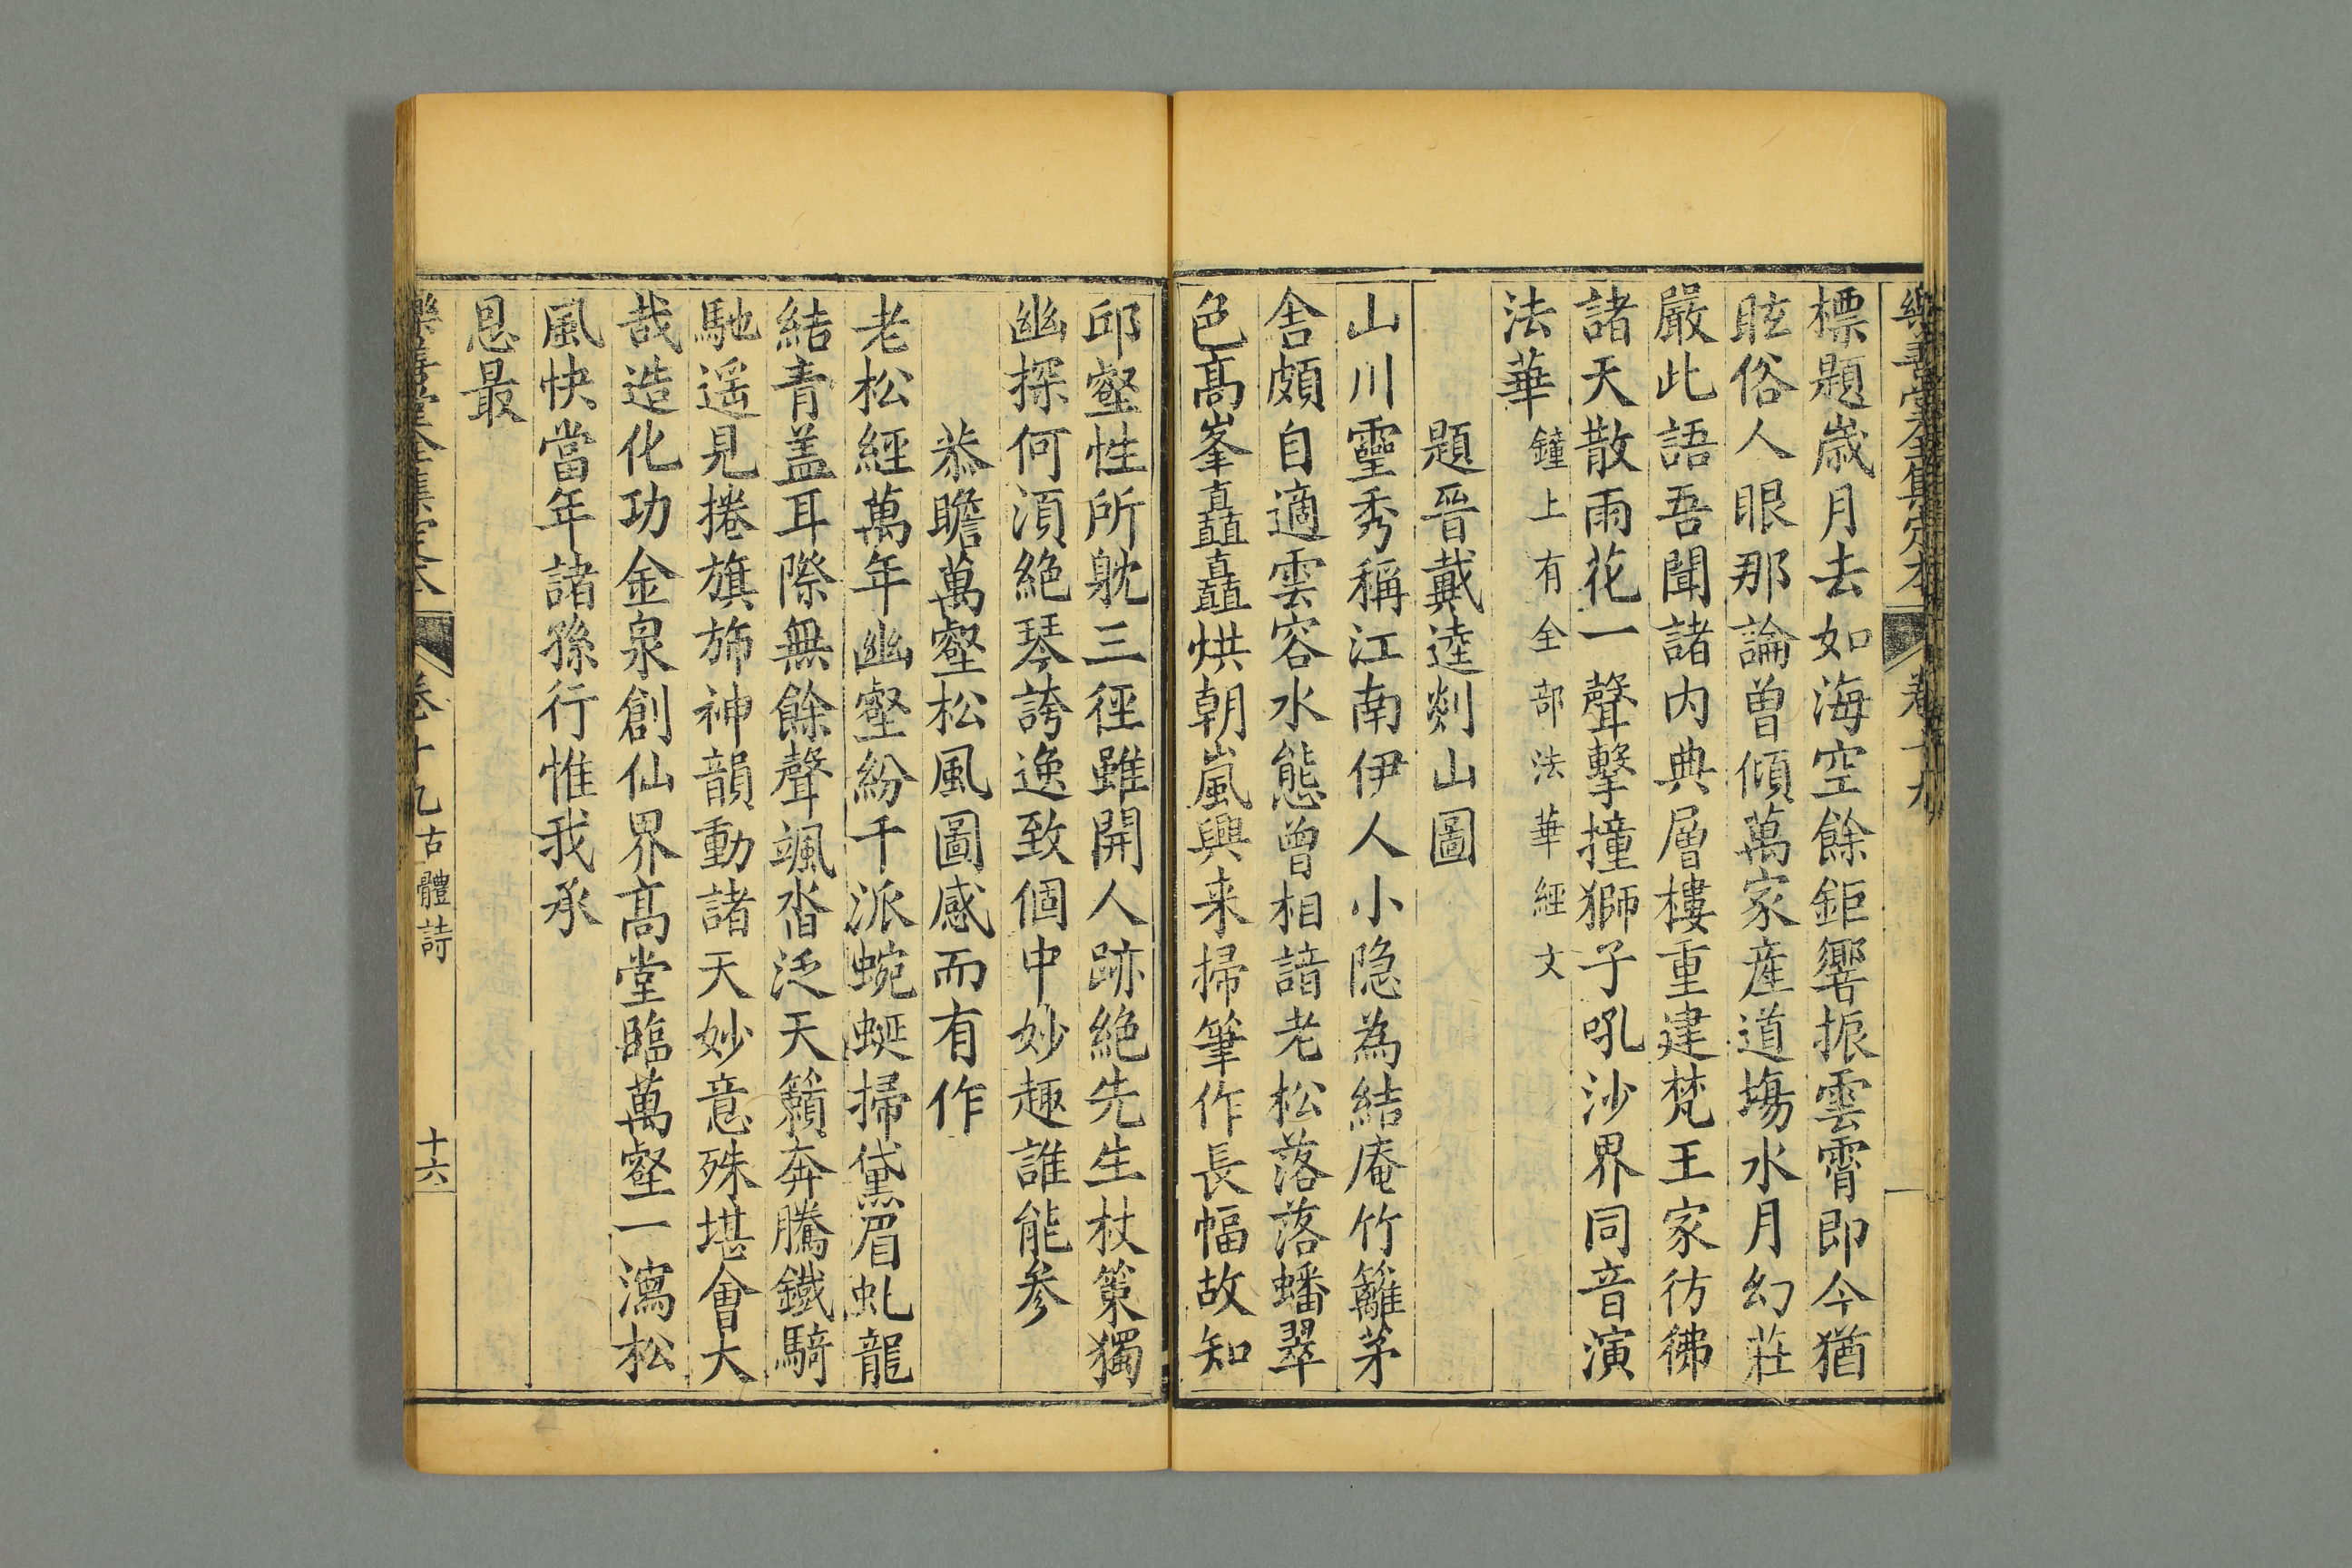 樂善堂全集定本 卷十九
標題歲月去如海空餘鉅響振雲霄即今猶
眩俗人眼那論曾傾萬家産道塲水月幻莊
嚴此語吾聞諸内典層樓重建梵王家彷彿
諸天散雨花一聲擊撞獅子吼沙界同音演
法華鐘上有全部法華經文
題晉戴逵剡山圖
山川靈秀稱江南伊人小隐為結庵竹籬茅
舍頗自適雲容水態曾相諳老松落落蟠翠
色髙峯矗矗烘朝嵐興来掃筆作長幅故知
邱壑性所躭三徑雖開人跡絶先生杖䇿獨
幽探何湏絶琴誇逸致個中妙趣誰能参
恭瞻萬壑松風圖感而有作
老松經萬年幽壑紛千派蜿蜒掃黛眉虬龍
結青盖耳際無餘聲颯沓泛天籟奔騰鐵騎
馳遥見捲旗斾神韻動諸天妙意殊堪會大
哉造化功金泉創仙界髙堂臨萬壑一瀉松
風快當年諸孫行惟我承
恩最
樂善堂全集定本 卷十九 古體詩 十六